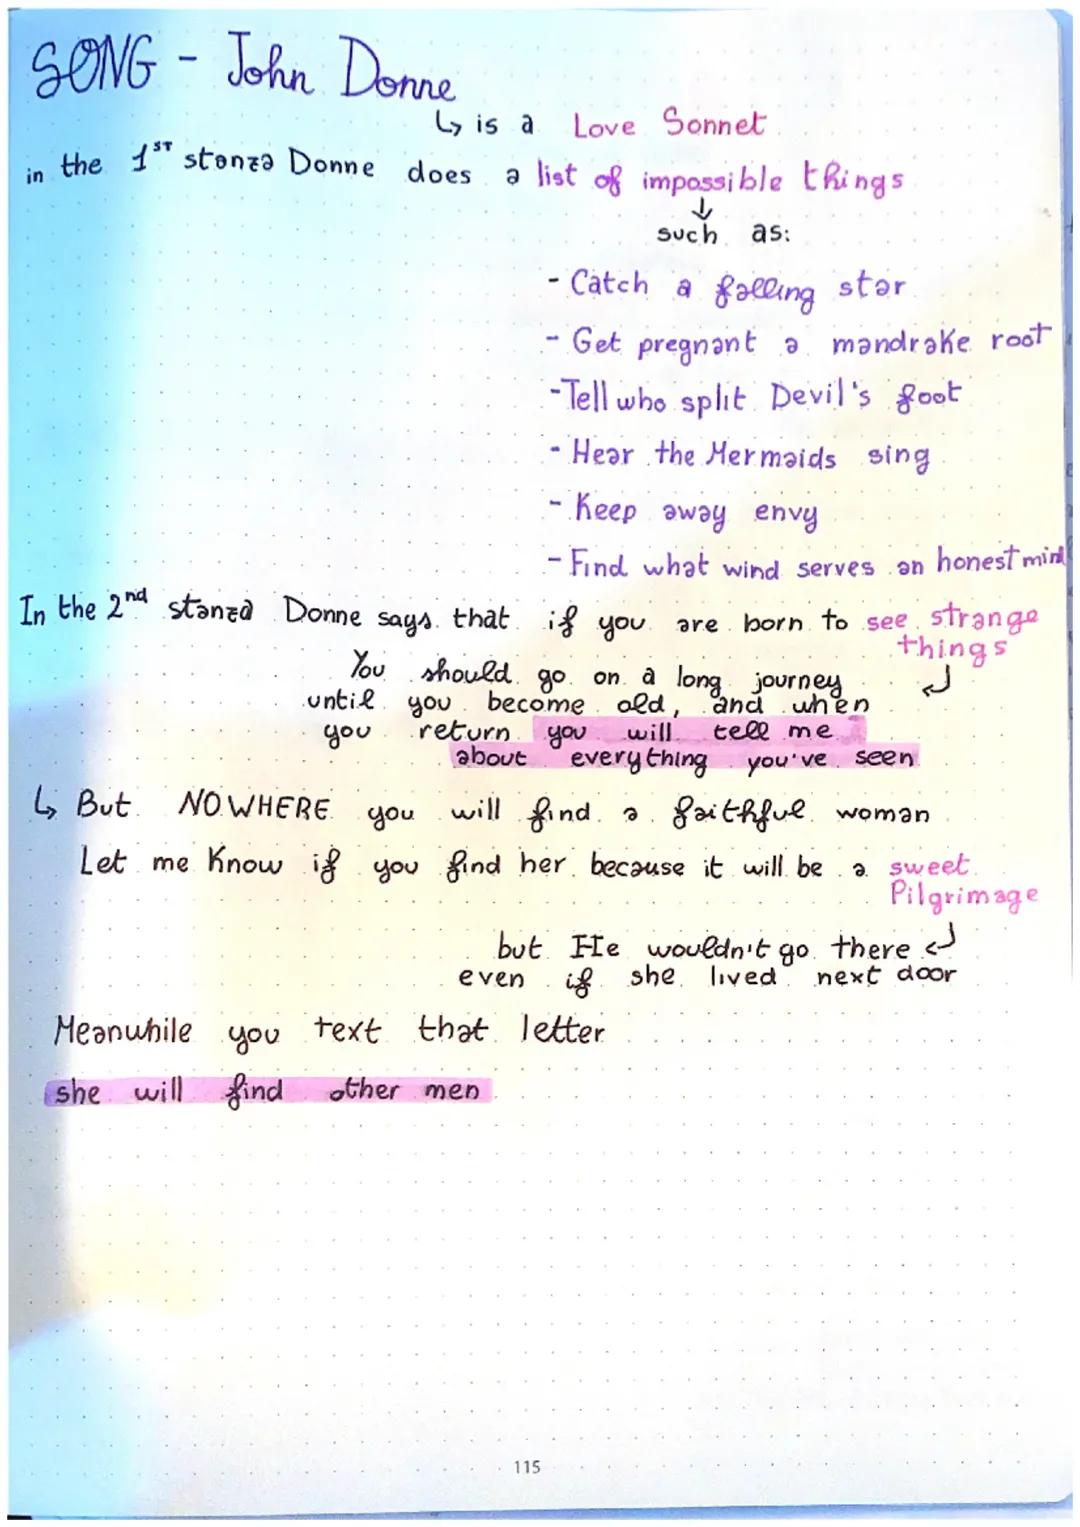 SONG - John Donne
↳ is a Love Sonnet
in the 1ST stanza Donne does a list of impossible things
↓
such as:
- Catch a falling star
- Get pregnant a mandrake root
- Tell who split Devil's foot
- Hear the Mermaids sing
- Keep away envy
- Find what wind serves an honest mind
In the 2nd stanza Donne says that if you are born to see strange
things
You should go on a long journey
until you become old, and when
you return you will tell me
about everything you've seen
↳ But NOWHERE you will find a faithful woman
Let me Know if you find her because it will be a sweet
Pilgrimage
but He wouldn't go there
even if she lived next door
Meanwhile you text that letter
she will find other men
115